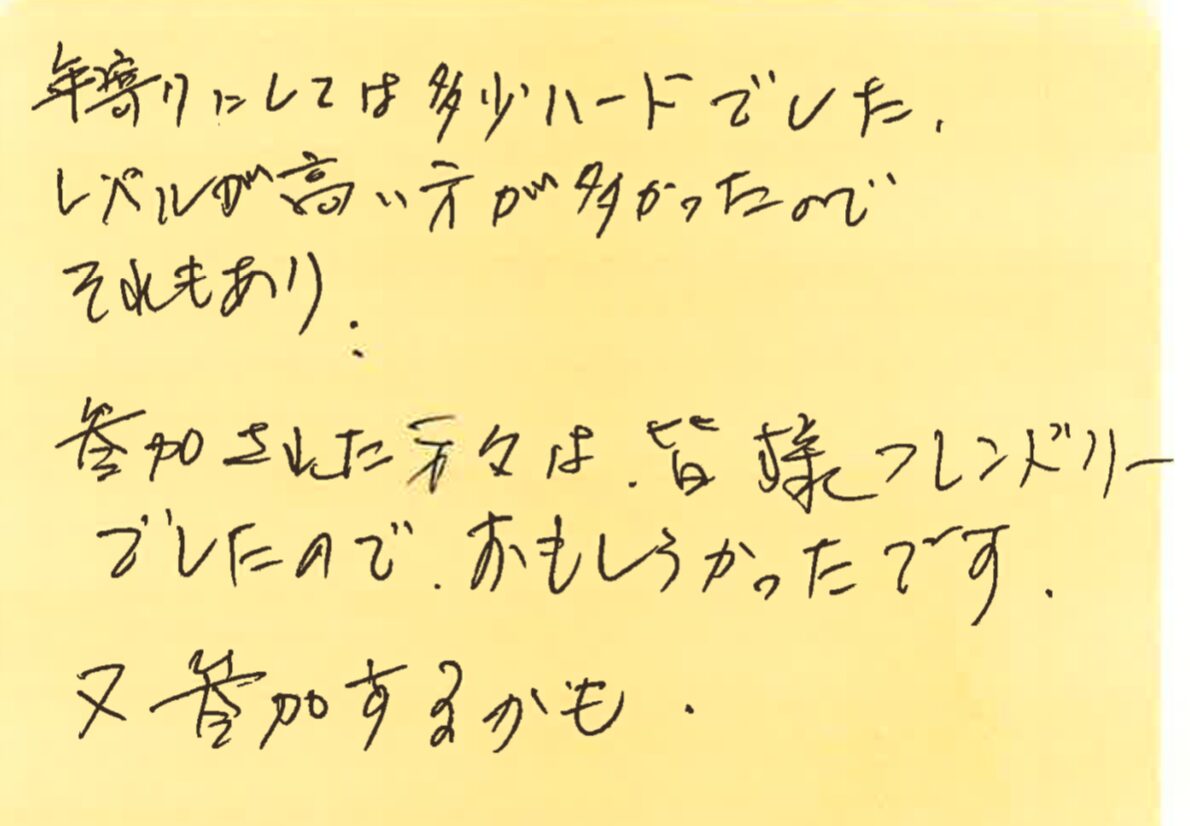 年寄りにしては多少ハードでした.
レベルが高い方が多かったので
それもあり.
参加された方々は.皆様フレンドリー
でしたので.おもしろかったです.
又参加するかも.